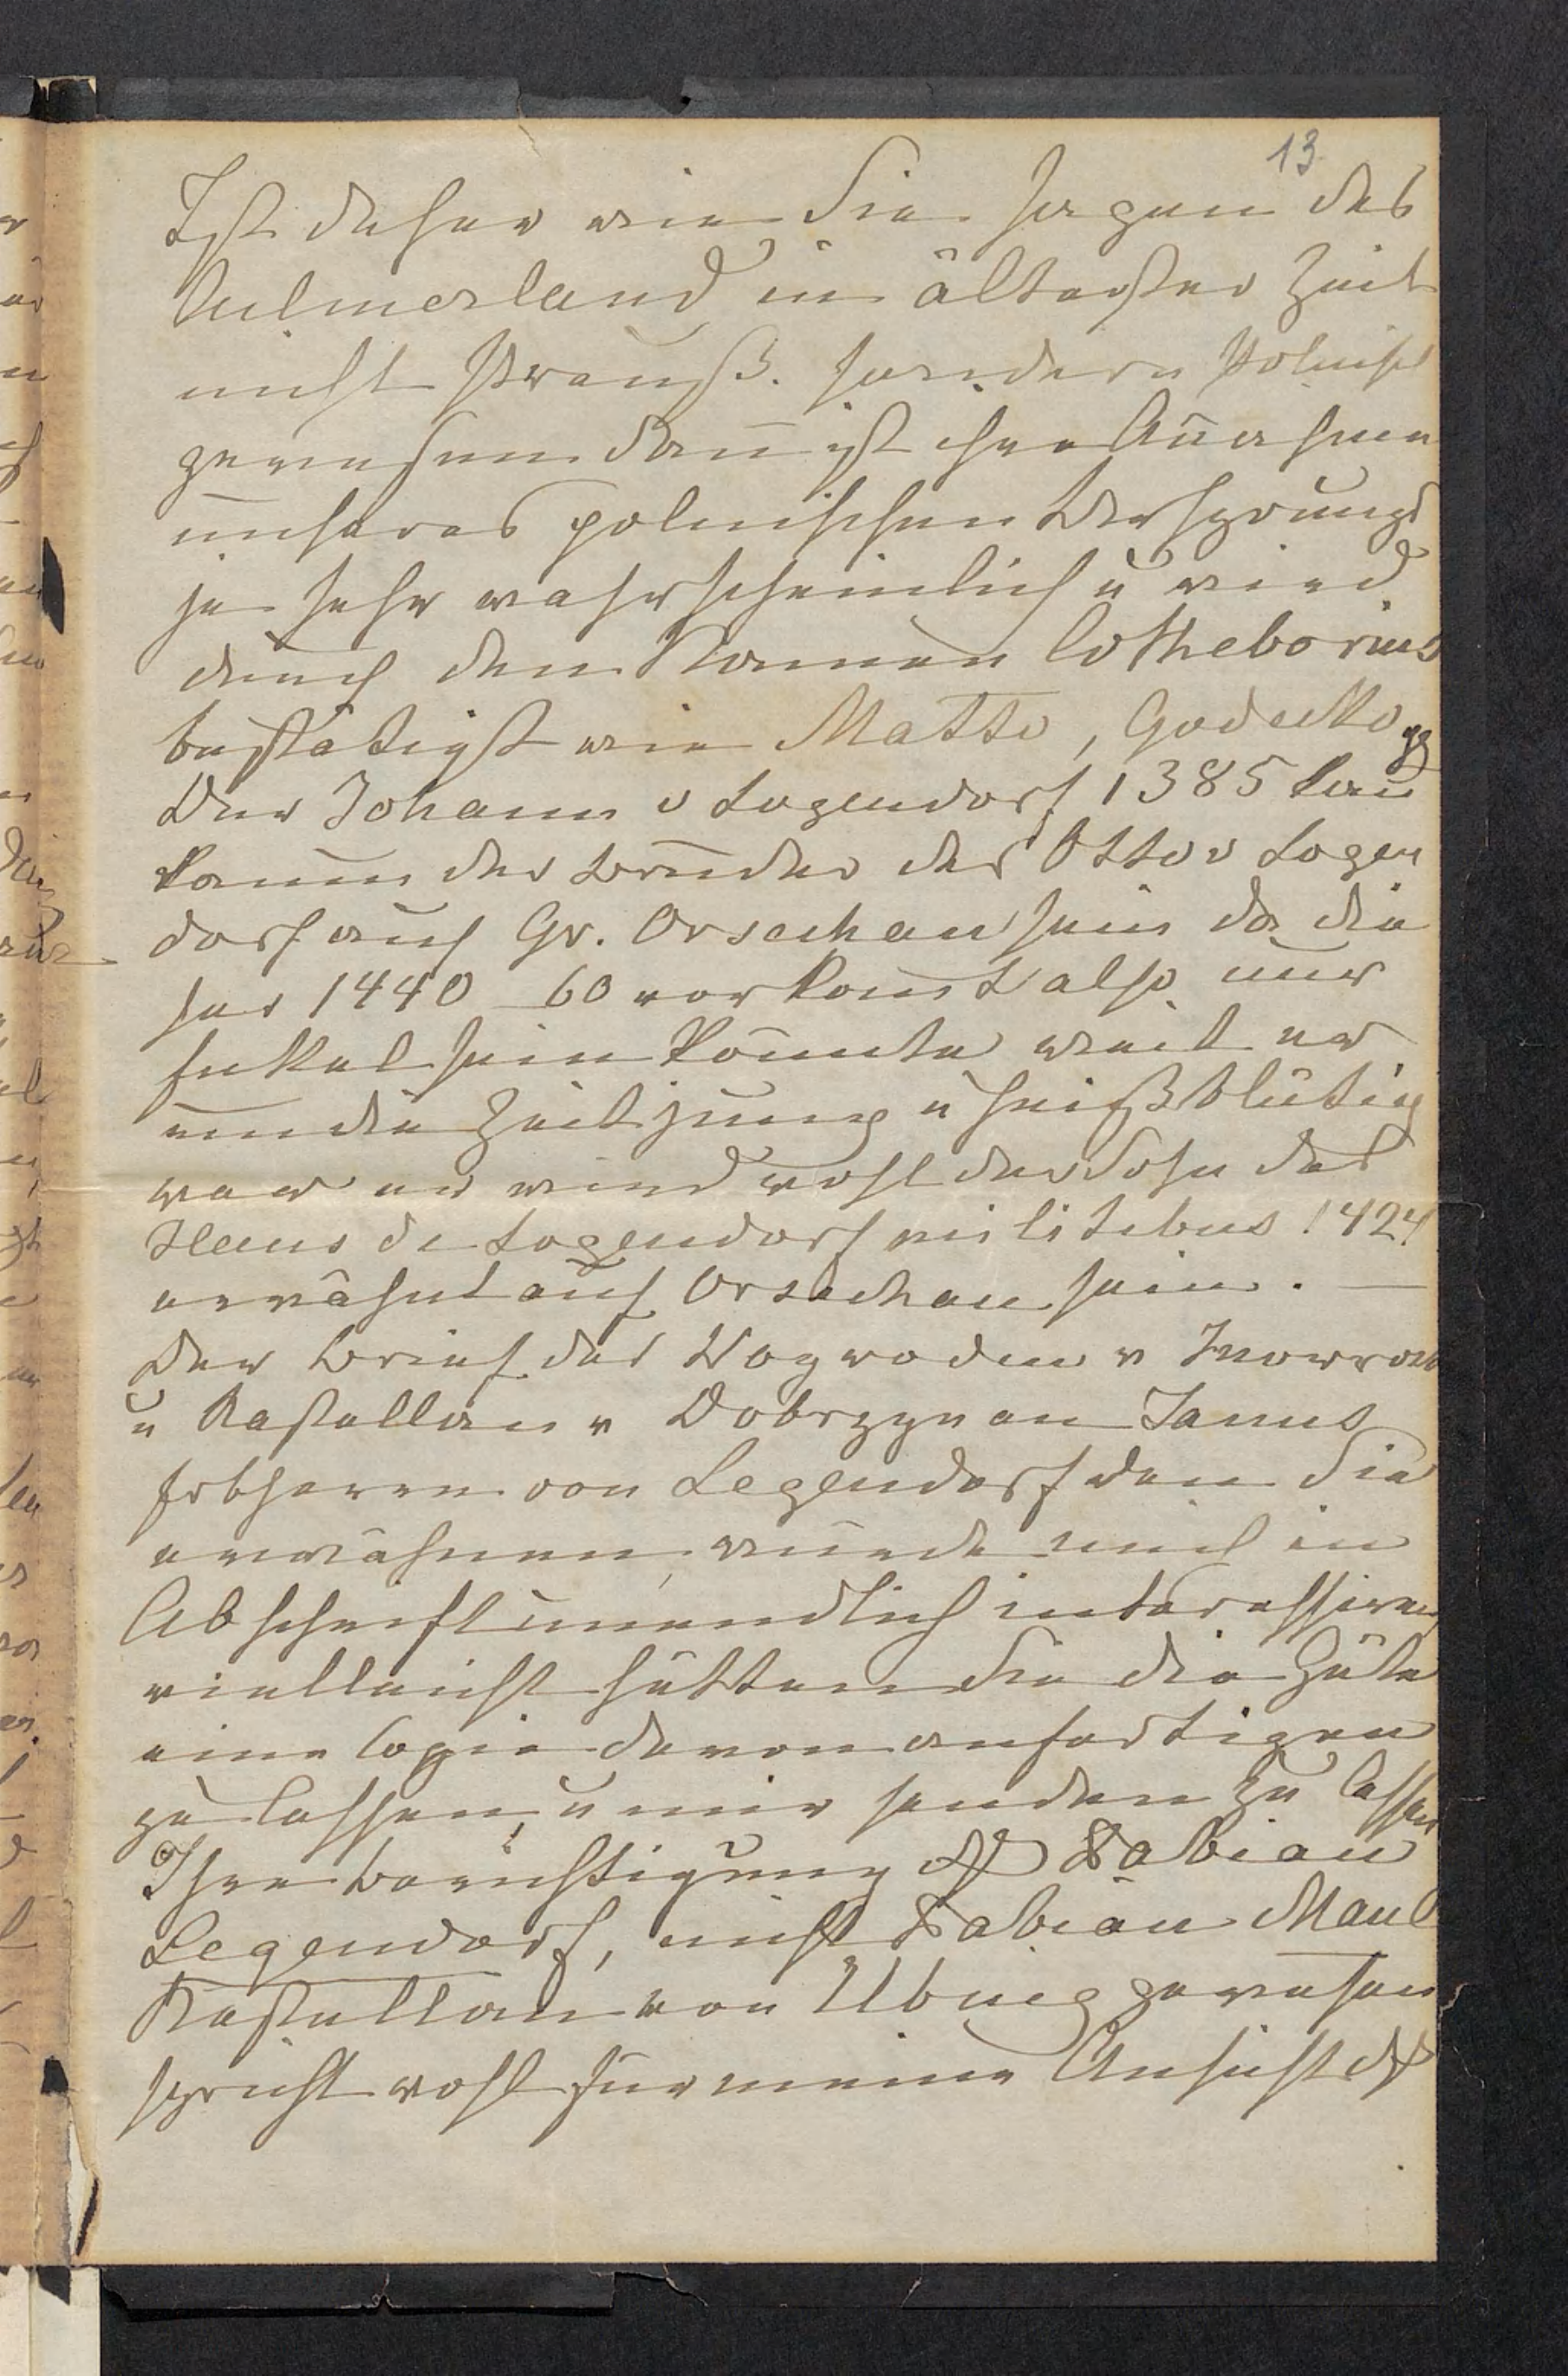 13
Ist daher wie Sie sagen das
Culmerland in ältester Zeit
nicht Preuß. sondern Polnisch
gewesen dan̄ ist ihre An̄ahme
unseres polnischen Ursprungs
ja sehr wahrscheinlich u wird
durch den Namen Cotheborius
bestätigt wie Matto, Godecko
Der Johann v Logendorf 1385 kan̄
kaum der Bruder des Otto v Logen
dorf auf Gr. Orsechau sein da die
ser 1440_60 vorkom̄t also nur
Enkel sein kon̄te weil er
um die Zeit jung u heißblütig
war er wird wohl der Sohn des
Hans de Logendorf militibus 1424
erwähnt auf Orsechau sein. —
Der Brief des Woywoden v Inowrocl
u Kastellan v Dobrzyn an Janus
Erbherrn von Legendorf den Sie
erwähnen, würde mich in
Abschrift unendlich interessiren
vielleicht hätten Sie die Güte
eine Copie davon anfertigen
zu lassen, u mir senden zu lassen
Ihre Berichtigung dß Fabian
Legendorf, nicht Fabian Maul
Kastellan von Elbing gewesen
spricht wohl für meine Ansicht dß